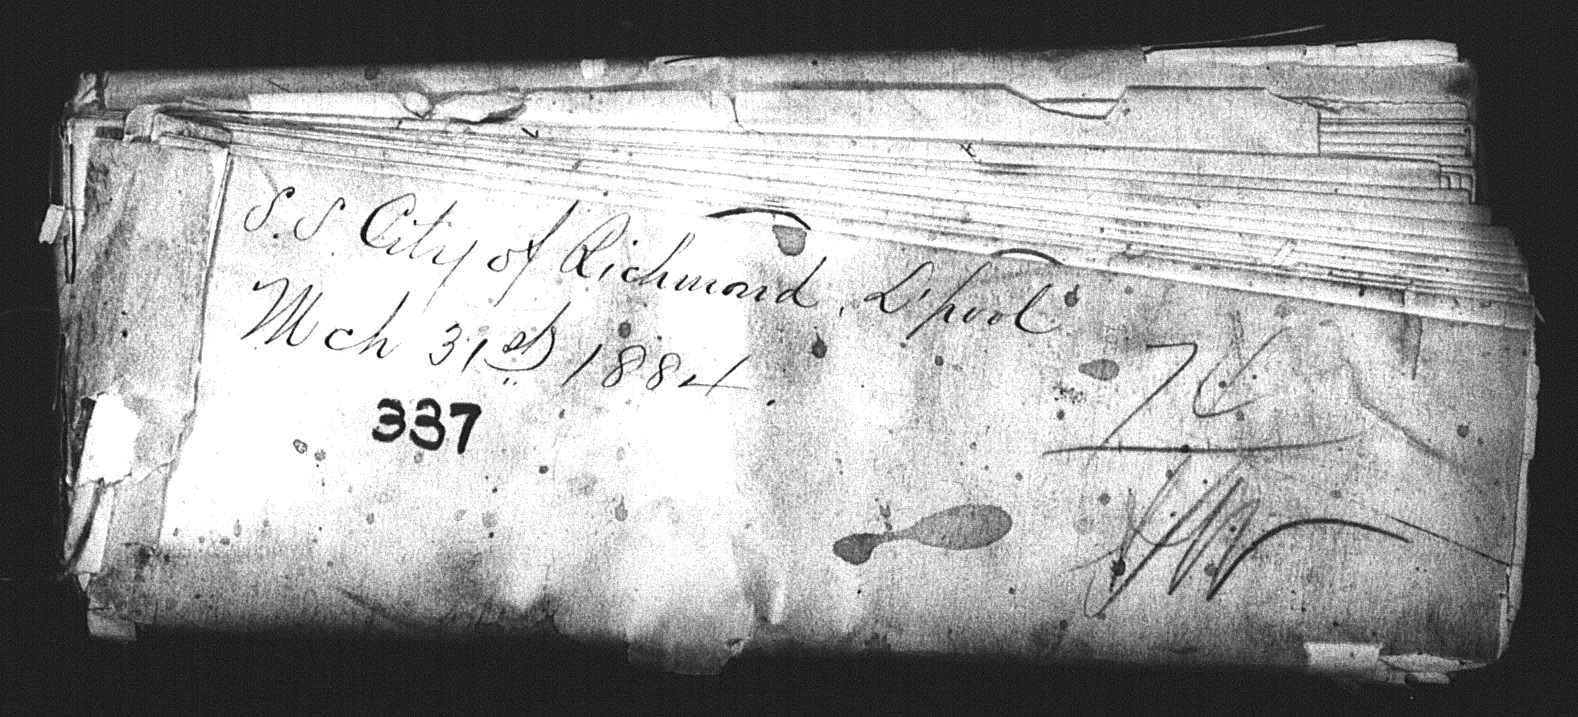 S.S. City of Richmond, L'pool
Mch 31st 1884
337